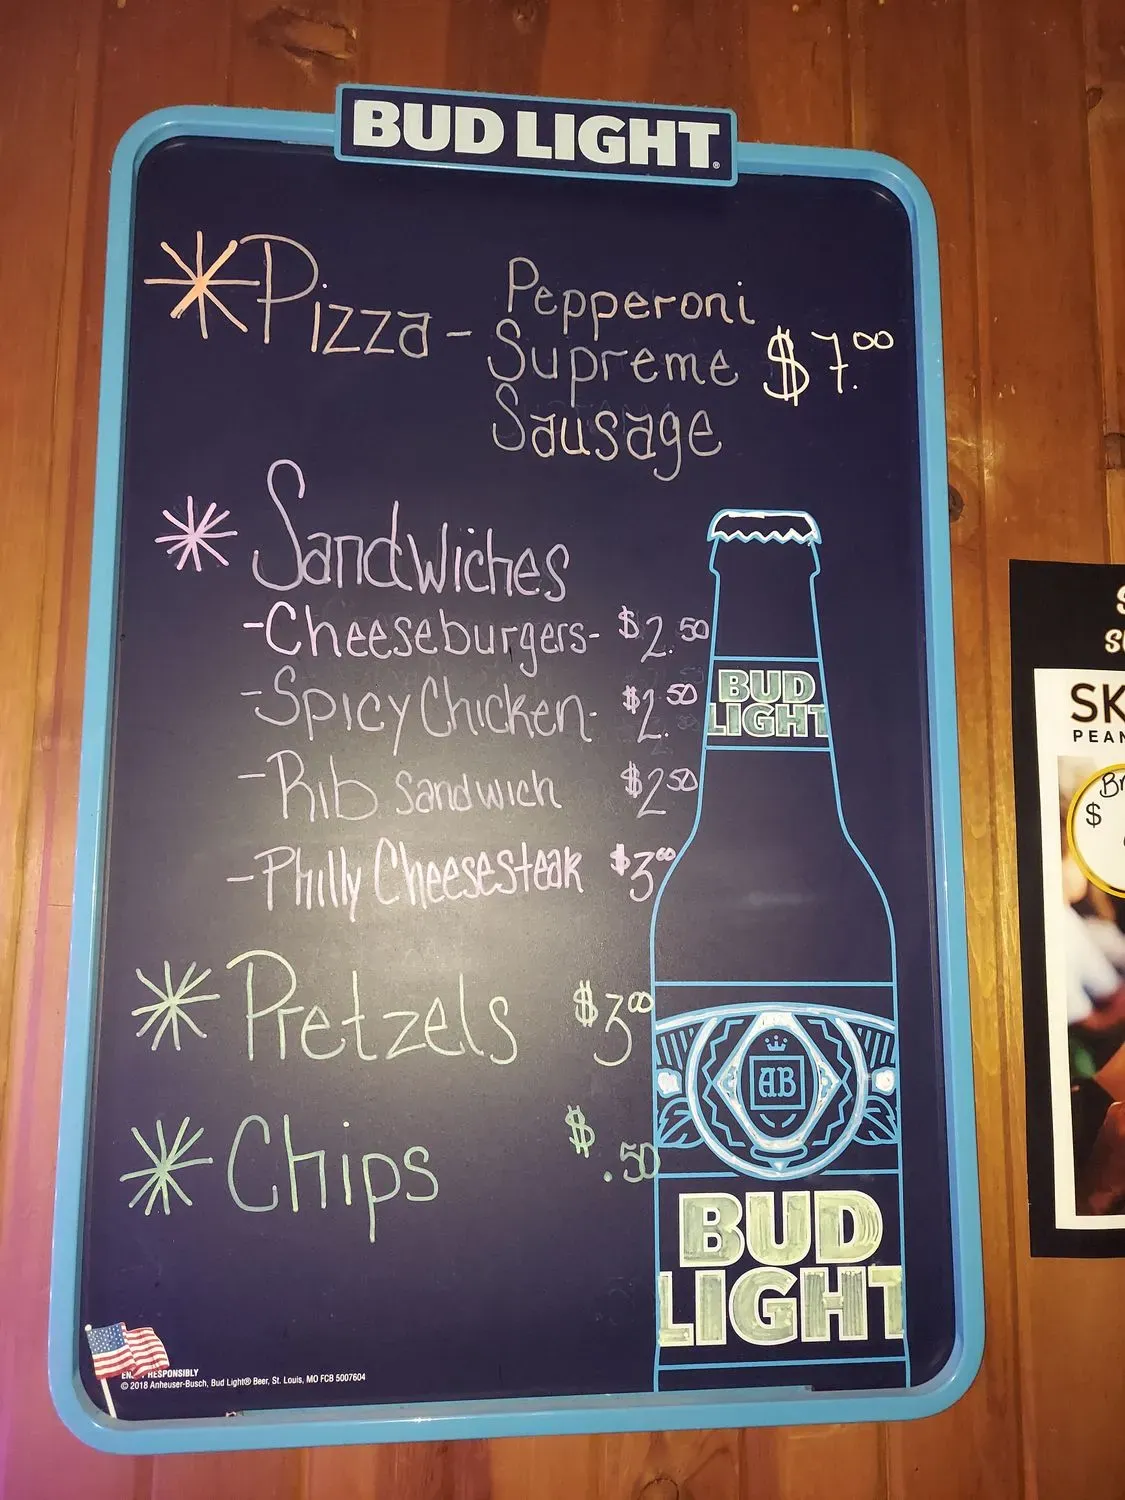 BUD LIGHT®
*Pizza - Pepperoni
Supreme $7.00
Sausage
* Sandwiches
-Cheeseburgers- $2.50
-Spicy Chicken- $2.50
-Rib sandwich $2.50
-Philly Cheesesteak $3.00
* Pretzels $3.00
* Chips $.50
BUD
LIGHT
AB
BUD
LIGHT
RESPONSIBLY
© 2018 Anheuser-Busch, Bud Light® Beer, St. Louis, MO FCB 5007604
SK
PEAN
$